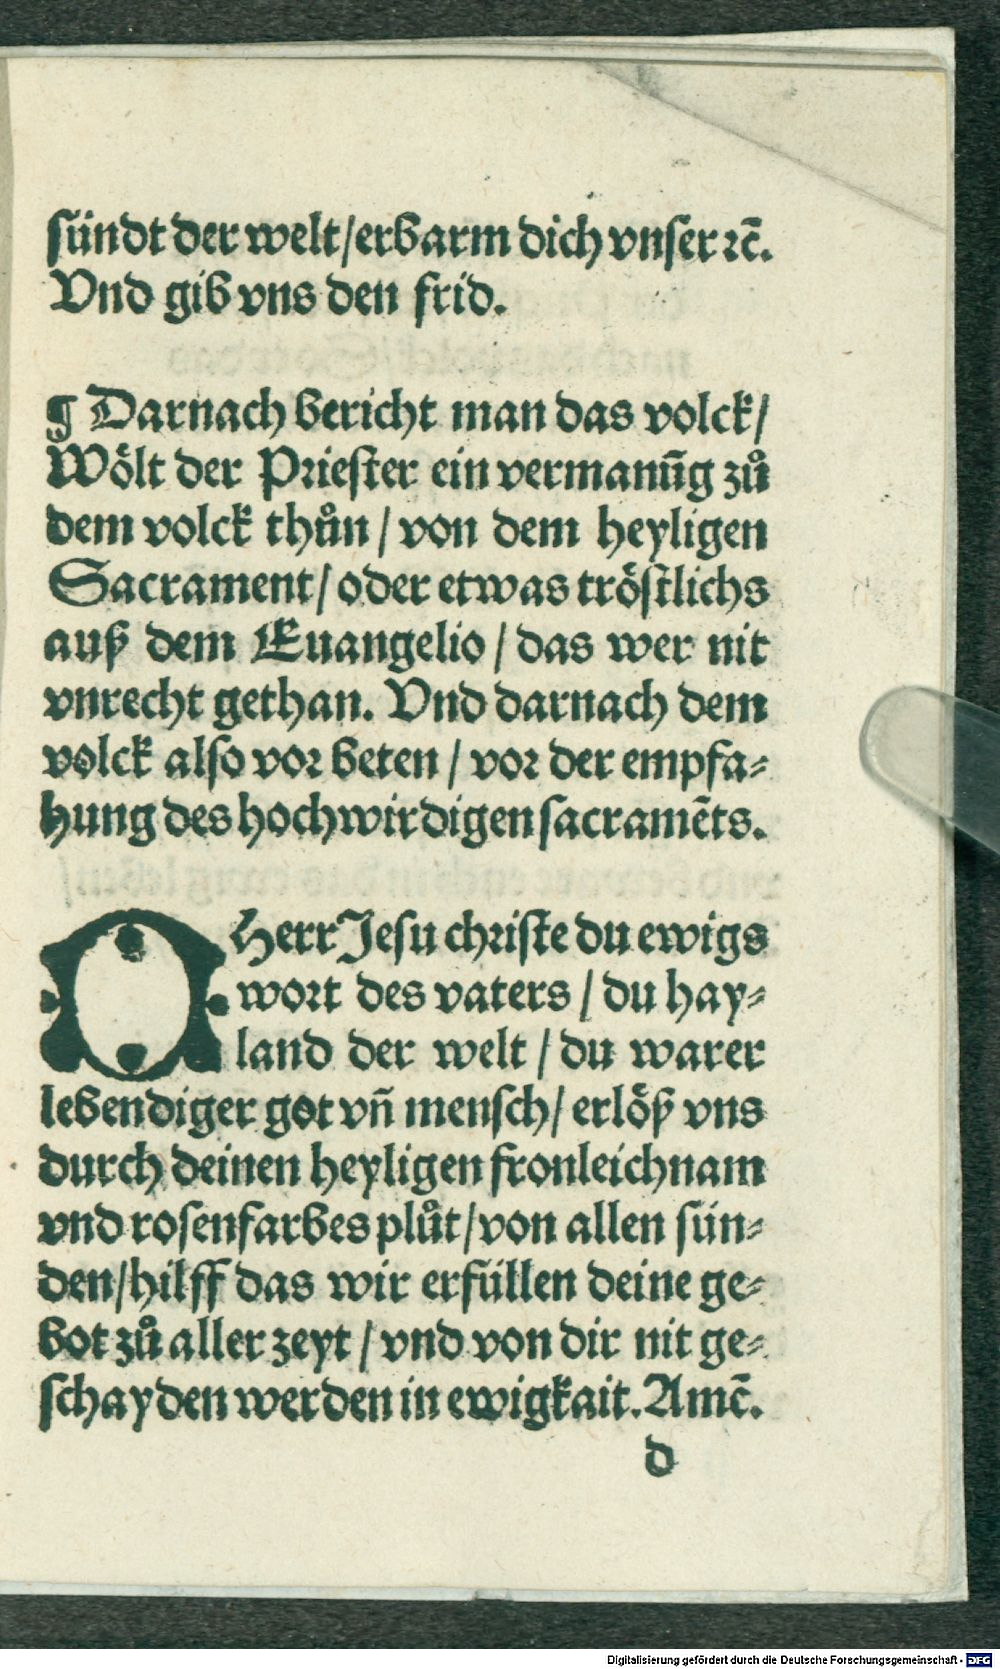 sündt der welt/erbarm dich vnser ꝛc̄.
Vnd gib vns den frid.
¶ Darnach bericht man das volck/
Wölt der Priester ein vermanūg zů
dem volck thůn / von dem heyligen
Sacrament/ oder etwas tröstlichs
auß dem Euangelio / das wer nit
vnrecht gethan. Vnd darnach dem
volck also vor beten / vor der empfa-
hung des hochwirdigen sacramēts.
O Herr Jesu christe du ewigs
wort des vaters / du hay-
land der welt / du warer
lebendiger got vn̄ mensch/ erlöß vns
durch deinen heyligen fronleichnam
vnd rosenfarbes plůt/von allen sün-
den/hilff das wir erfüllen deine ge-
bot zů aller zeyt / vnd von dir nit ge-
schayden werden in ewigkait. Amē.
d
Digitalisierung gefördert durch die Deutsche Forschungsgemeinschaft - DFG